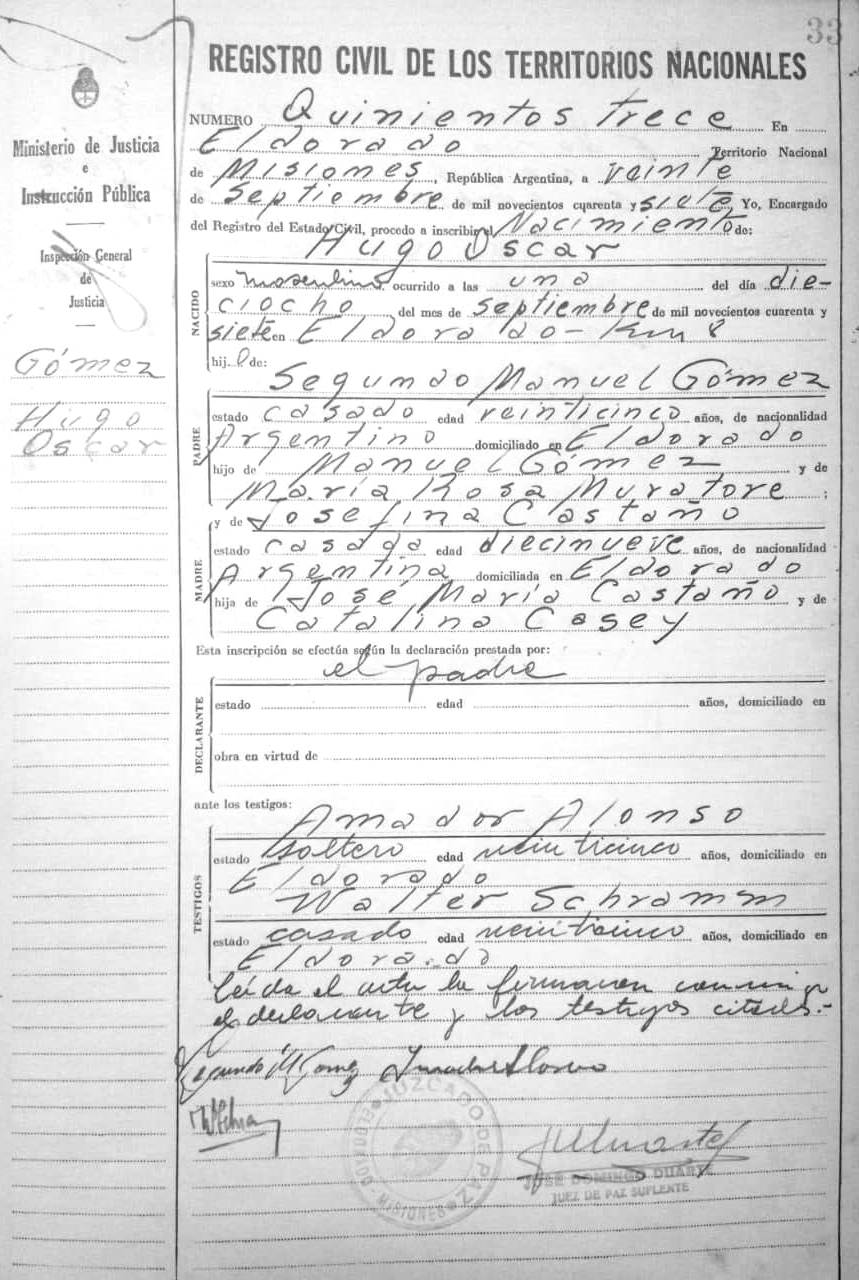 33
REGISTRO CIVIL DE LOS TERRITORIOS NACIONALES
Ministerio de Justicia
e
Instrucción Pública
Inspección General
de
Justicia
Gómez
Hugo
Oscar
NUMERO Quinientos trece En
Eldorado Territorio Nacional
de Misiones, República Argentina, a veinte
de Septiembre de mil novecientos cuarenta y siete Yo, Encargado
del Registro del Estado Civil, procedo a inscribir el Nacimiento de:
Hugo Oscar
NACIDO
sexo masculino ocurrido a las una del día die-
ciocho del mes de septiembre de mil novecientos cuarenta y
siete en Eldorado - Km 8
hij o de:
Segundo Manuel Gómez
PADRE
estado casado edad veinticinco años, de nacionalidad
Argentino domiciliado en Eldorado
hijo de Manuel Gómez y de
María Rosa Muratore ;
y de Josefina Castaño
MADRE
estado casada edad diecinueve años, de nacionalidad
Argentina domiciliada en Eldorado
hija de José María Castaño y de
Catalina Casey
Esta inscripción se efectúa según la declaración prestada por:
el padre
DECLARANTE
estado edad años, domiciliado en
obra en virtud de
ante los testigos:
Amador Alonso
TESTIGOS
estado soltero edad veinticinco años, domiciliado en
Eldorado
Walter Schramm
estado casado edad veinticinco años, domiciliado en
Eldorado
Leída el acta la firmaron conmigo
el declarante y los testigos citados.-
Segundo M Gomez Amador Alonso
JUZGADO DE PAZ
ELDORADO - MISIONES
JOSÉ DOMINGO DUARTE
JUEZ DE PAZ SUPLENTE